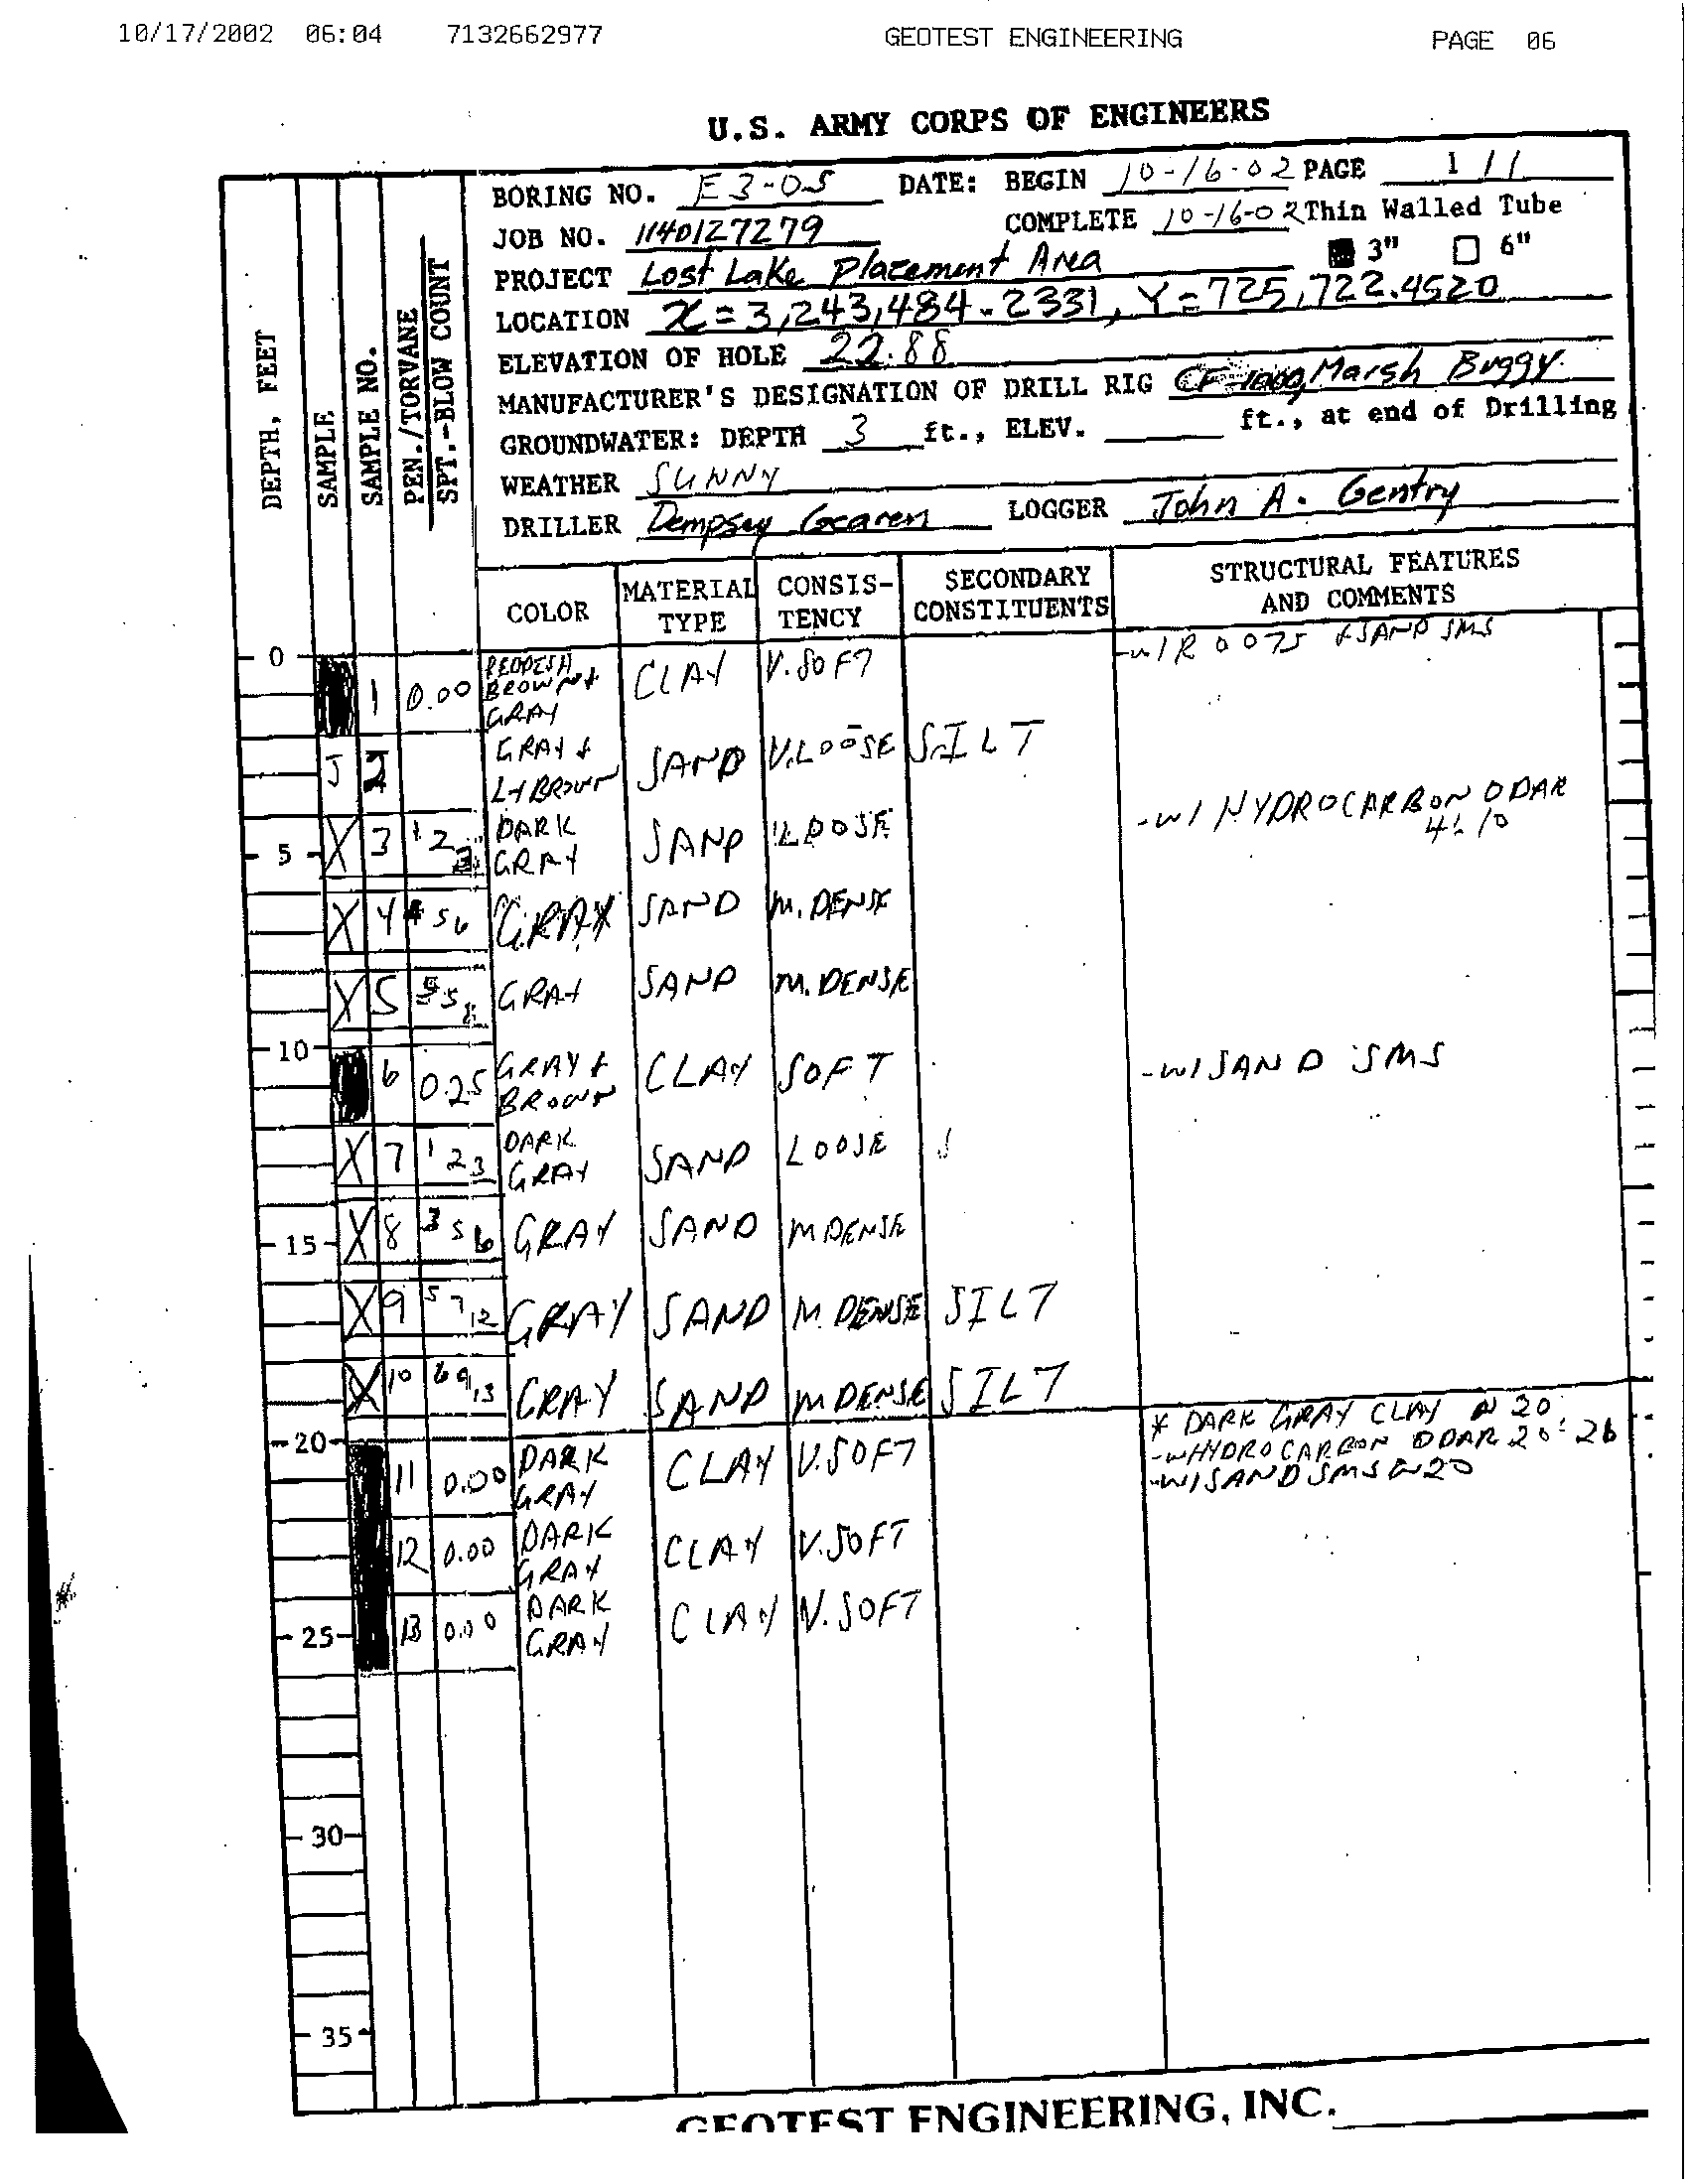 10/17/2002 06:04 7132662977 GEOTEST ENGINEERING PAGE 06
U.S. ARMY CORPS OF ENGINEERS
DEPTH, FEET
SAMPLE
SAMPLE NO.
PEN./TORVANE
SPT.-BLOW COUNT
BORING NO. E3-05 DATE: BEGIN 10-16-02 PAGE 1 / 1
JOB NO. 1140127279 COMPLETE 10-16-02 Thin Walled Tube
PROJECT Lost Lake Placement Area 3" 6"
LOCATION X = 3,243,484.2331, Y = 725,722.4520
ELEVATION OF HOLE 22.88
MANUFACTURER'S DESIGNATION OF DRILL RIG Marsh Buggy
GROUNDWATER: DEPTH 3 ft., ELEV. ft., at end of Drilling
WEATHER SUNNY
DRILLER Dempsey LOGGER John A. Gentry
COLOR MATERIAL TYPE CONSIS-TENCY SECONDARY CONSTITUENTS STRUCTURAL FEATURES AND COMMENTS
0 1 0.00 REDDISH BROWN & GRAY CLAY V.SOFT & SAND SMS
J 2 GRAY & LT BROWN SAND V.LOOSE SILT
5 X 3 1 2 3 DARK GRAY SAND LOOSE -W/ HYDROCARBON ODAR 4-10
X 4 4 5 6 GRAY SAND M. DENSE
X 5 5 5 8 GRAY SAND M. DENSE
10 6 0.25 GRAY & BROWN CLAY SOFT -W/SAND SMS
X 7 1 2 3 DARK GRAY SAND LOOSE
15 X 8 3 5 6 GRAY SAND M DENSE
X 9 5 7 12 GRAY SAND M. DENSE SILT
X 10 6 9 13 GRAY SAND M DENSE SILT
* DARK GRAY CLAY @ 20
-W HYDROCARBON ODAR 20-26
-W/SAND SMS @ 20
20 11 0.00 DARK GRAY CLAY V.SOFT
12 0.00 DARK GRAY CLAY V.SOFT
25 13 0.00 DARK GRAY CLAY V.SOFT
30
35
GEOTEST ENGINEERING, INC.